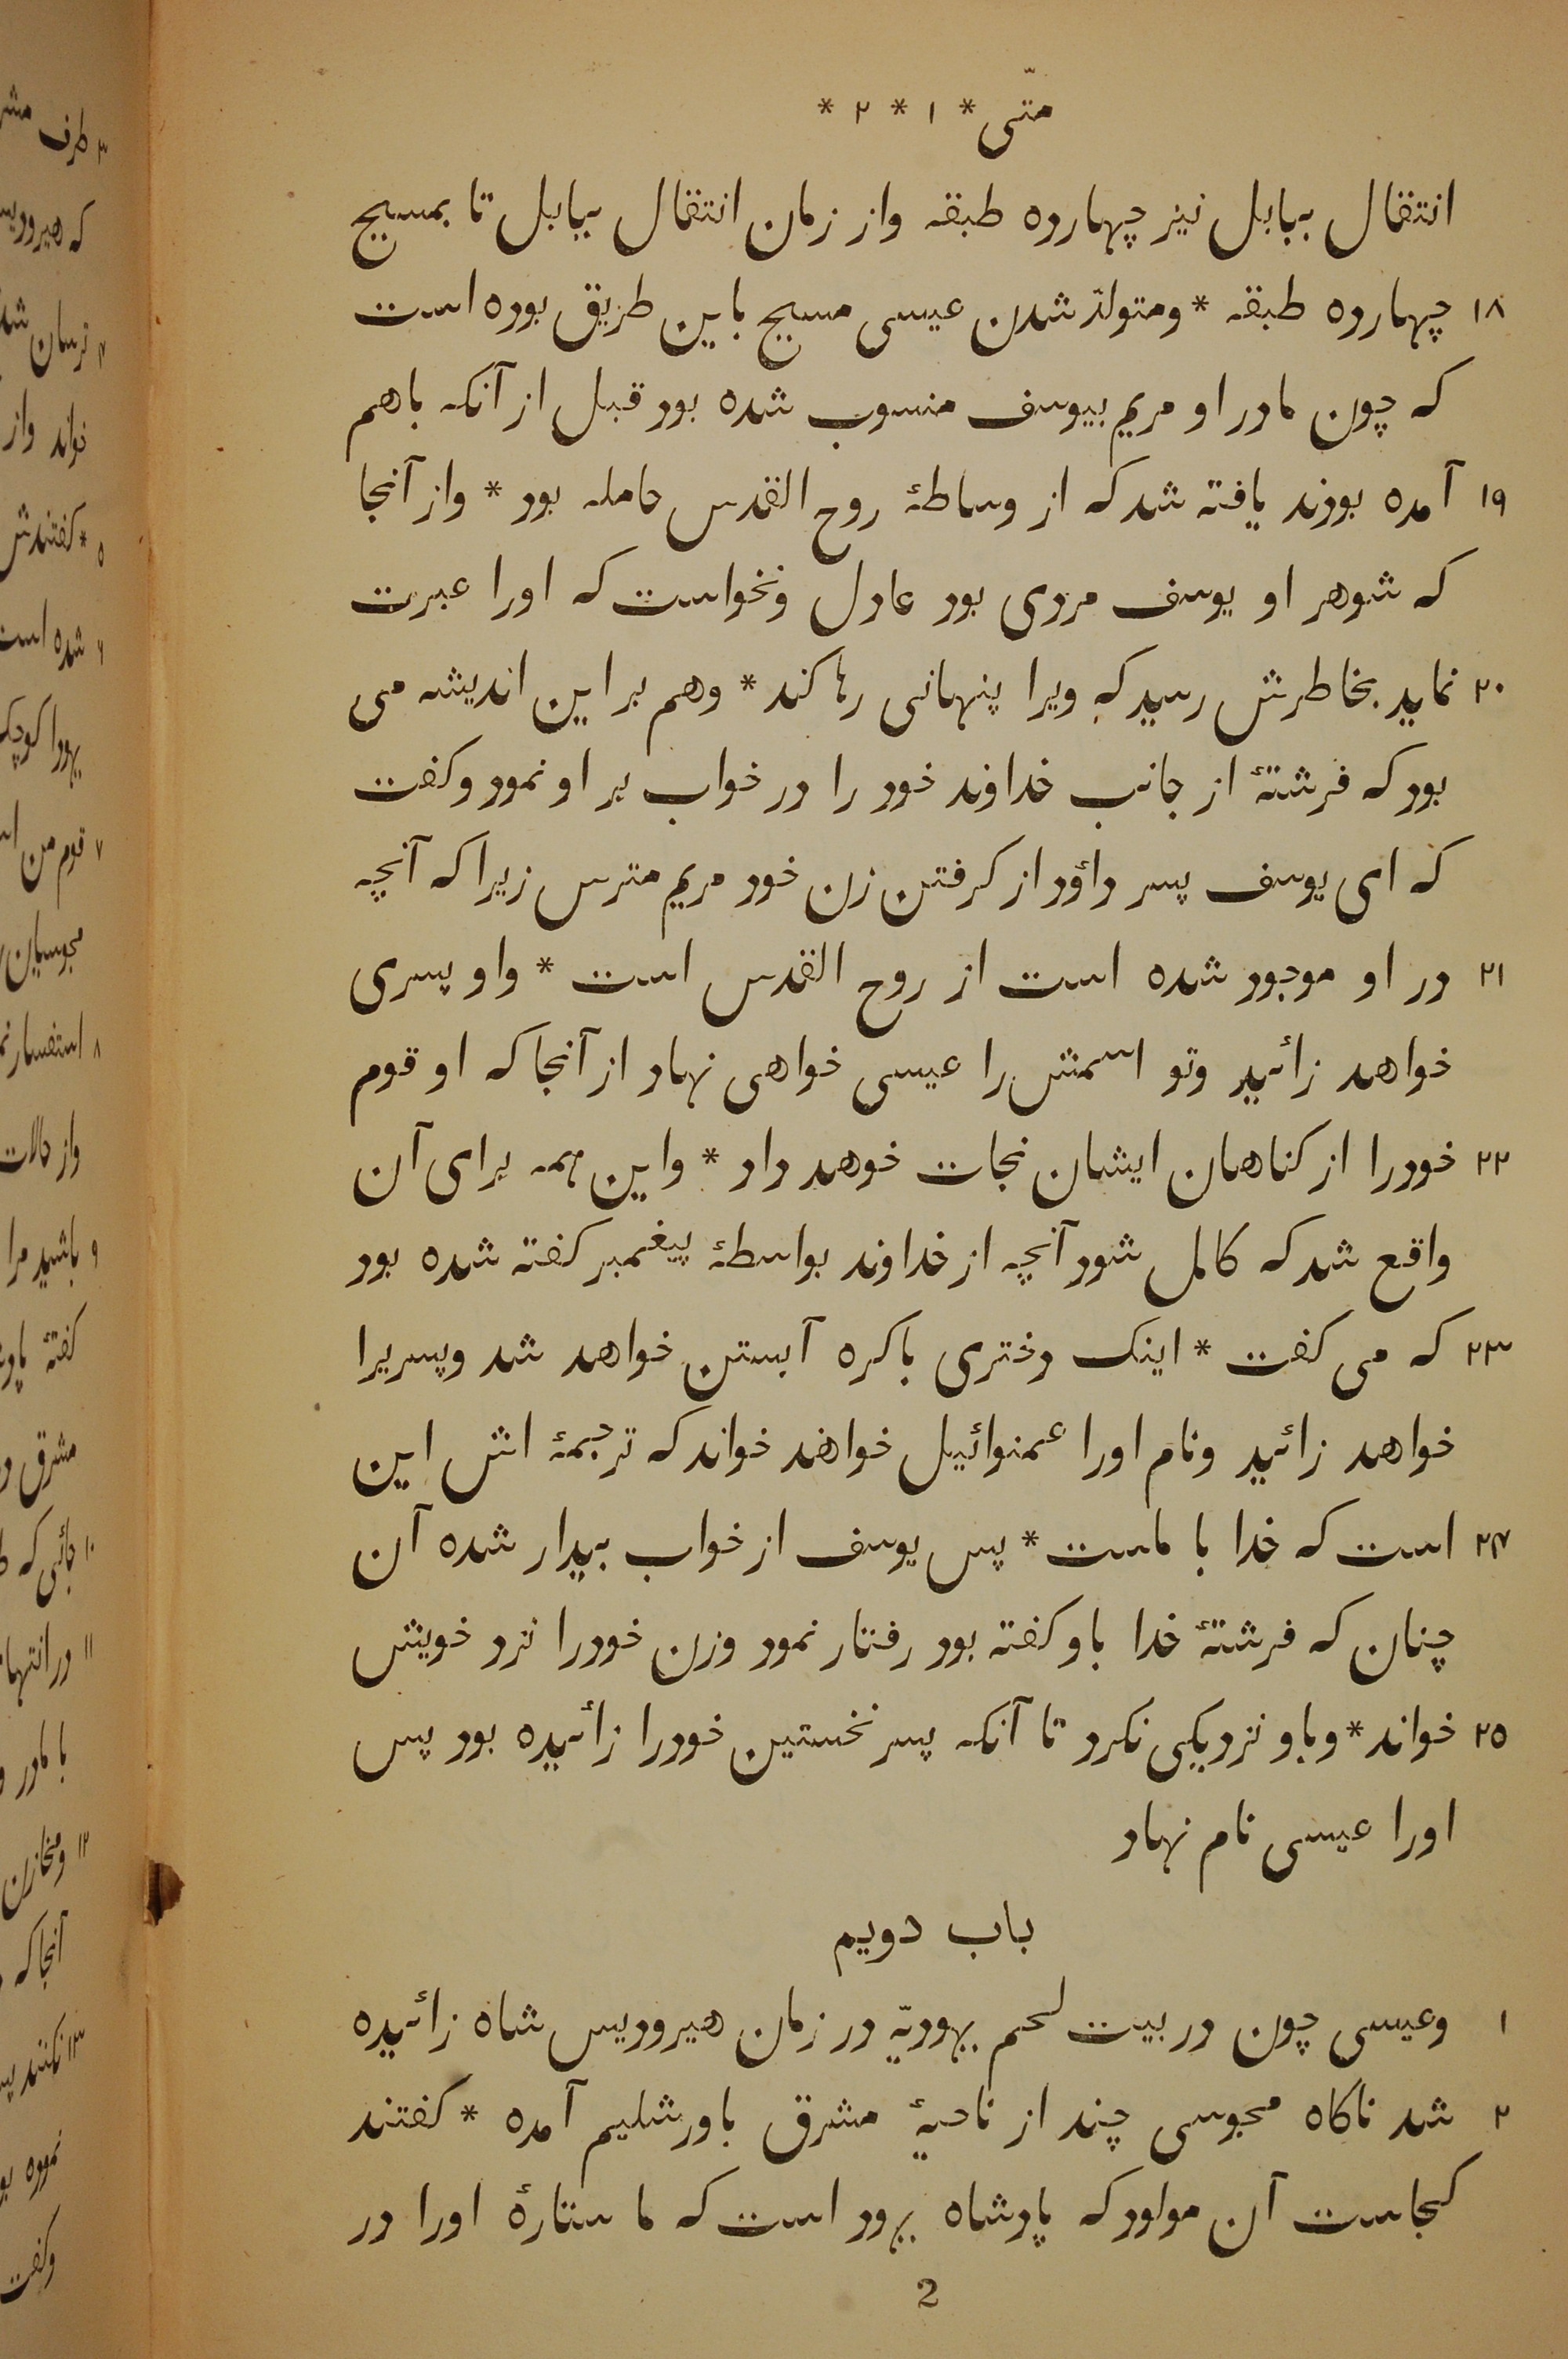 متّی * ۱ * ۲ *
انتقال ببابل نیز چهارده طبقه واز زمان انتقال ببابل تا بمسیح
۱۸ چهارده طبقه * ومتولّد شدن عیسی مسیح باین طریق بوده است
که چون مادر او مریم بیوسف منسوب شده بود قبل از آنکه باهم
۱۹ آمده بودند یافته شد که از وساطهٔ روح القدس حامله بود * واز آنجا
که شوهر او یوسف مردی بود عادل ونخواست که اورا عبرت
۲۰ نماید بخاطرش رسید که ویرا پنهانی رها کند * وهم بر این اندیشه می
بود که فرشتهٔ از جانب خداوند خود را در خواب بر او نمود وکفت
که ای یوسف پسر داؤد از کرفتن زن خود مریم مترس زیرا که آنچه
۲۱ در او موجود شده است از روح القدس است * واو پسری
خواهد زائید وتو اسمش را عیسی خواهی نهاد از آنجا که او قوم
۲۲ خودرا از کناهان ایشان نجات خوهد داد * واین همه برای آن
واقع شد که کامل شود آنچه از خداوند بواسطهٔ پیغمبر کفته شده بود
۲۳ که می کفت * اینک دختری باکره آبستن خواهد شد وپسریرا
خواهد زائید ونام اورا عمنوائیل خواهند خواند که ترجمهٔ اش این
۲۴ است که خدا با ماست * پس یوسف از خواب بیدار شده آن
چنان که فرشتهٔ خدا باو کفته بود رفتار نمود وزن خودرا نزد خویش
۲۵ خواند * وباو نزدیکی نکرد تا آنکه پسر نخستین خودرا زائیده بود پس
اورا عیسی نام نهاد
باب دویم
۱ وعیسی چون در بیت لحم یهودیّه در زمان هیرودیس شاه زائیده
۲ شد ناکاه مجوسی چند از ناحیهٔ مشرق باورشلیم آمده * کفتند
کجاست آن مولود که پادشاه یهود است که ما ستارهٔ اورا در
2
۳ طرف
که
۴ ترسان
خواند واز
۵ * کفتندش
۶ شده است
یهودا کوچک
۷ قوم من
مجوسیان
۸
واز حالات
۹ باشید مرا
کفتهٔ
مشرق
۱۰ جائی که
۱۱
با مادر
۱۲ ومخازن
آنجا که
۱۳ پس
نموده
وکفت